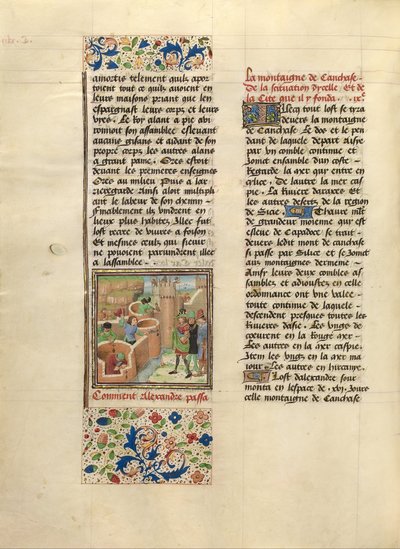 amortis telement quilz apor
toient tout ce quilz avoient en
leurs maisons priant que len
espargnast leurs corps et leurs
vyes. Le Roy alant a pie avi
ronnoit son assamblee eslevant
aucuns gisans et aidant de son
propre corps les autres alans
a grant paine. Ores estoit
devant les premieres enseignes
Ores au milieu Puis a lar
rieregarde Ainsi aloit multipli
ant le labeur de son chemin
Finablement ilz vindrent en
lieux plus habitez Illec fut
lost recree de vivres a foison
Et mesmes ceulx qui sieuir
ne pouoient parvindrent illec
a lassamblee
Comment Alexandre passa
la montaigne de Canchase.
De la scituation dycelle. Et de
la Cite que il y fonda. ix.
Illecq tout lost se tira
devers la montaigne
de Canchase Le dos et le pen
dant de laquelle depart asise
par un comble continue et
Joinct ensamble dun coste
Regarde la mer qui entre en
cilice. De lautre la mer cas
pie. La Riviere daraxes et
les autres desertz de la region
de Sicie Thaure mont
de grandeur moienne qui est
eslevé de Capadoce se trait
devers ledit mont de canchase
si passe par Silice et se Joinct
aux montaignes dermenie
Ainsy leurs deux combles as
samblez et adioustez en celle
ordonnance ont une valee
toute continue de laquelle
descendent presques toutes les
Rivieres dasie. Les unes de
ceuvrent en la Rouge mer
Les autres en la mer caspie.
Item les unes en la mer ma
iour Les autres en hircanye.
Lost dalexandre sour
monta en lespace de xvj Jours
celle montaigne de Canchase